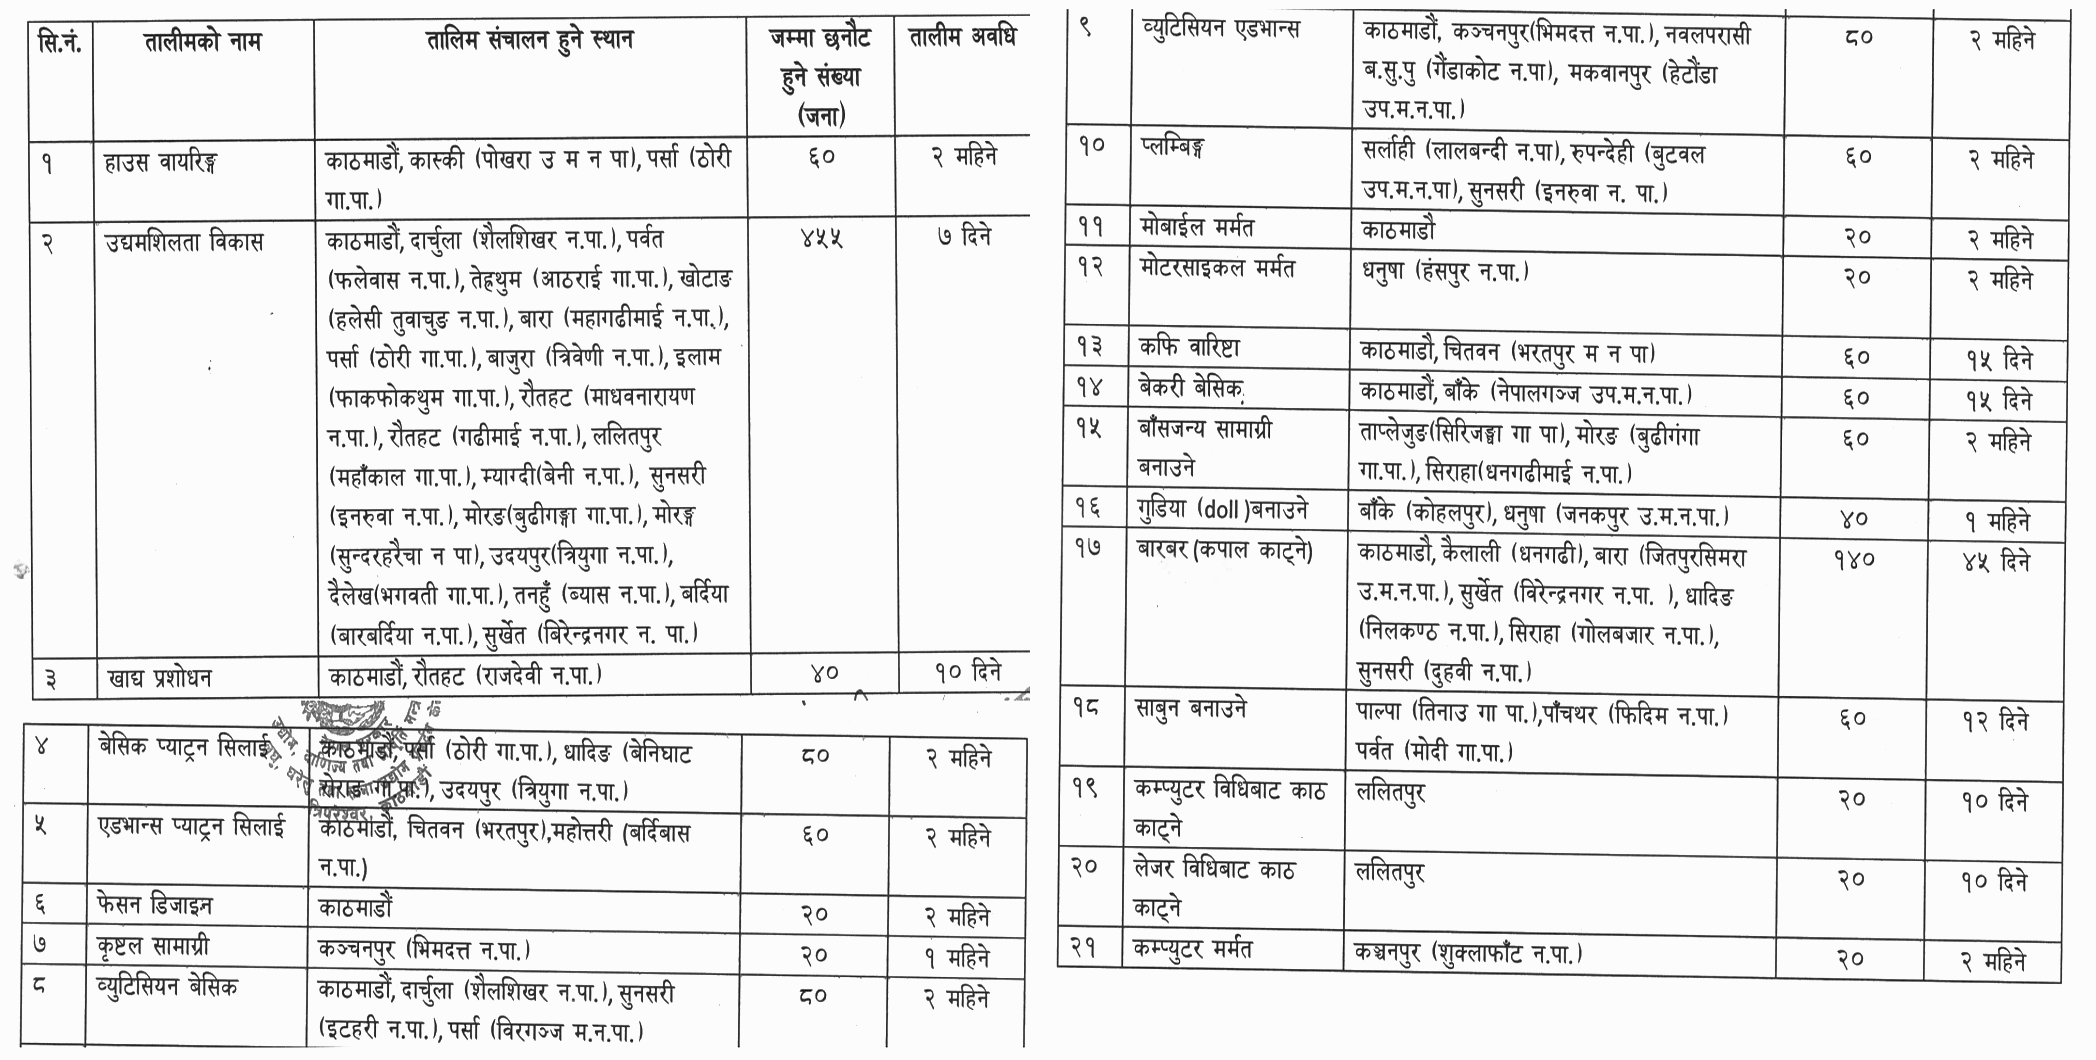 सि.नं. तालीमको नाम तालिम संचालन हुने स्थान जम्मा छनौट तालीम अवधि
हुने संख्या
(जना)
१ हाउस वायरिङ्ग काठमाडौं, कास्की (पोखरा उ म न पा), पर्सा (ठोरी ६० २ महिने
गा.पा.)
२ उद्यमशिलता विकास काठमाडौं, दार्चुला (शैलशिखर न.पा.), पर्वत ४५५ ७ दिने
(फलेवास न.पा.), तेह्रथुम (आठराई गा.पा.), खोटाङ
(हलेसी तुवाचुङ न.पा.), बारा (महागढीमाई न.पा.),
पर्सा (ठोरी गा.पा.), बाजुरा (त्रिवेणी न.पा.), इलाम
(फाकफोकथुम गा.पा.), रौतहट (माधवनारायण
न.पा.), रौतहट (गढीमाई न.पा.), ललितपुर
(महाँकाल गा.पा.), म्याग्दी(बेनी न.पा.), सुनसरी
(इनरुवा न.पा.), मोरङ(बुढीगङ्गा गा.पा.), मोरङ्ग
(सुन्दरहरैचा न पा), उदयपुर(त्रियुगा न.पा.),
दैलेख(भगवती गा.पा.), तनहुँ (ब्यास न.पा.), बर्दिया
(बारबर्दिया न.पा.), सुर्खेत (बिरेन्द्रनगर न. पा.)
३ खाद्य प्रशोधन काठमाडौं, रौतहट (राजदेवी न.पा.) ४० १० दिने
४ बेसिक प्याट्रन सिलाई काठमाडौं, पर्सा (ठोरी गा.पा.), धादिङ (बेनिघाट ८० २ महिने
रोराङ गा.पा.), उदयपुर (त्रियुगा न.पा.)
५ एडभान्स प्याट्रन सिलाई काठमाडौं, चितवन (भरतपुर),महोत्तरी (बर्दिबास ६० २ महिने
न.पा.)
६ फेसन डिजाइन काठमाडौं २० २ महिने
७ कृष्टल सामाग्री कञ्चनपुर (भिमदत्त न.पा.) २० १ महिने
८ व्युटिसियन बेसिक काठमाडौं, दार्चुला (शैलशिखर न.पा.), सुनसरी ८० २ महिने
(इटहरी न.पा.), पर्सा (विरगञ्ज म.न.पा.)
९ व्युटिसियन एडभान्स काठमाडौं, कञ्चनपुर(भिमदत्त न.पा.), नवलपरासी ८० २ महिने
ब.सु.पु (गैंडाकोट न.पा), मकवानपुर (हेटौंडा
उप.म.न.पा.)
१० प्लम्बिङ्ग सर्लाही (लालबन्दी न.पा), रुपन्देही (बुटवल ६० २ महिने
उप.म.न.पा), सुनसरी (इनरुवा न. पा.)
११ मोबाईल मर्मत काठमाडौ २० २ महिने
१२ मोटरसाइकल मर्मत धनुषा (हंसपुर न.पा.) २० २ महिने
१३ कफि वारिष्टा काठमाडौ, चितवन (भरतपुर म न पा) ६० १५ दिने
१४ बेकरी बेसिक काठमाडौं, बाँके (नेपालगञ्ज उप.म.न.पा.) ६० १५ दिने
१५ बाँसजन्य सामाग्री ताप्लेजुङ(सिरिजङ्घा गा पा), मोरङ (बुढीगंगा ६० २ महिने
बनाउने गा.पा.), सिराहा(धनगढीमाई न.पा.)
१६ गुडिया (doll)बनाउने बाँके (कोहलपुर), धनुषा (जनकपुर उ.म.न.पा.) ४० १ महिने
१७ बारबर (कपाल काट्ने) काठमाडौ, कैलाली (धनगढी), बारा (जितपुरसिमरा १४० ४५ दिने
उ.म.न.पा.), सुर्खेत (विरेन्द्रनगर न.पा. ), धादिङ
(निलकण्ठ न.पा.), सिराहा (गोलबजार न.पा.),
सुनसरी (दुहवी न.पा.)
१८ साबुन बनाउने पाल्पा (तिनाउ गा पा.),पाँचथर (फिदिम न.पा.) ६० १२ दिने
पर्वत (मोदी गा.पा.)
१९ कम्प्युटर विधिबाट काठ ललितपुर २० १० दिने
काट्ने
२० लेजर विधिबाट काठ ललितपुर २० १० दिने
काट्ने
२१ कम्प्युटर मर्मत कञ्चनपुर (शुक्लाफाँट न.पा.) २० २ महिने